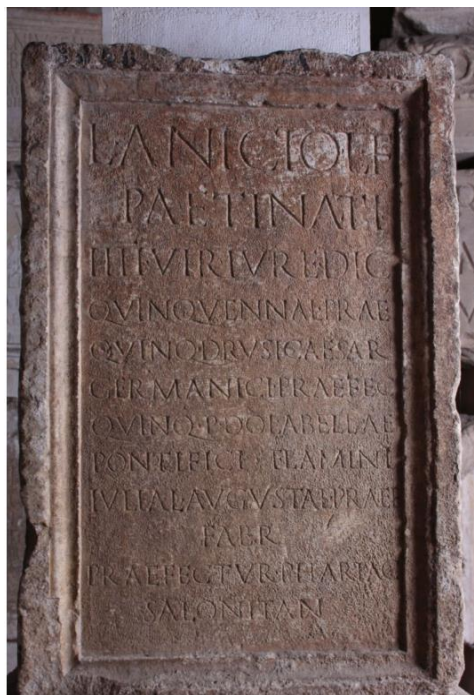 L ANICIO L F
PAETINATI
IIII VIR IVRE DIC
QVINQVENNAL PRAEF
QVINQ DRVSI CAESAR
GERMANICI PRAEFEC
QVINQ P DOLABELLAE
PONTIFICI FLAMINI
IVLIAE AVGVSTAE PRAEF
FABR
PRAEFECTVR PHARIAC
SALONITAN